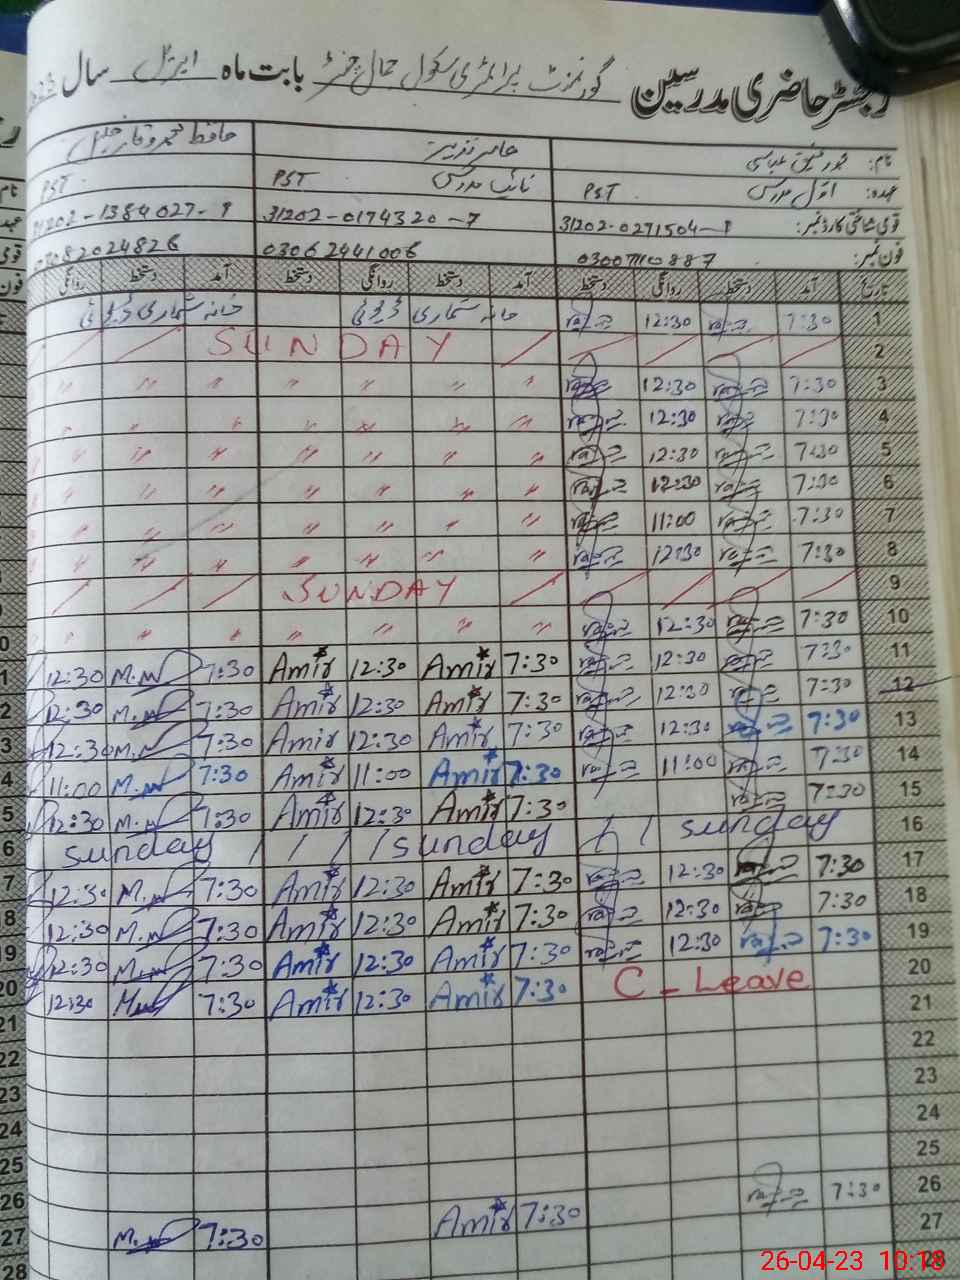 رجسٹر حاضری مدرسین گورنمنٹ پرائمری سکول جمال چنڑ بابت ماہ اپریل سال
نام: عباسی عامر نذیر حافظ محمد وقار جلیل
عہدہ: اول مدرس PST نائب مدرس PST PST
قومی شناختی کارڈ نمبر: 31202-0271504-9 31202-0174320-7 31202-1384027-9
فون نمبر: 03062441006 03082024826
تاریخ آمد دستخط روانگی دستخط آمد دستخط روانگی دستخط آمد دستخط روانگی
1 7:30 12:30 خانہ شماری ڈیوٹی خانہ شماری ڈیوٹی
2 SUNDAY
3 7:30 12:30 " " " " " " "
4 7:30 12:30 " " " " " " "
5 7:30 12:30 " " " " " " "
6 7:30 12:30 " " " " " " "
7 7:30 11:00 " " " " " " "
8 7:30 12:30 " " " " " " "
9 SUNDAY
10 7:30 12:30 " " " " " " "
11 7:30 12:30 7:30 Amir 12:30 Amir 7:30 M.W 12:30
12 7:30 12:30 7:30 Amir 12:30 Amir 7:30 M.W 12:30
13 7:30 12:30 7:30 Amir 12:30 Amir 7:30 M.W 12:30
14 7:30 11:00 7:30 Amir 11:00 Amir 7:30 M.W 11:00
15 7:30 7:30 Amir 12:30 Amir 7:30 M.W 12:30
16 sunday sunday sunday
17 7:30 12:30 7:30 Amir 12:30 Amir 7:30 M.W 12:30
18 7:30 12:30 7:30 Amir 12:30 Amir 7:30 M.W 12:30
19 7:30 12:30 7:30 Amir 12:30 Amir 7:30 M.W 12:30
20 C - Leave 7:30 Amir 12:30 Amir 7:30 M.W 12:30
21
22
23
24
25
26 7:30 7:30 Amir 7:30 M.W
27
28
26-04-23 10:18